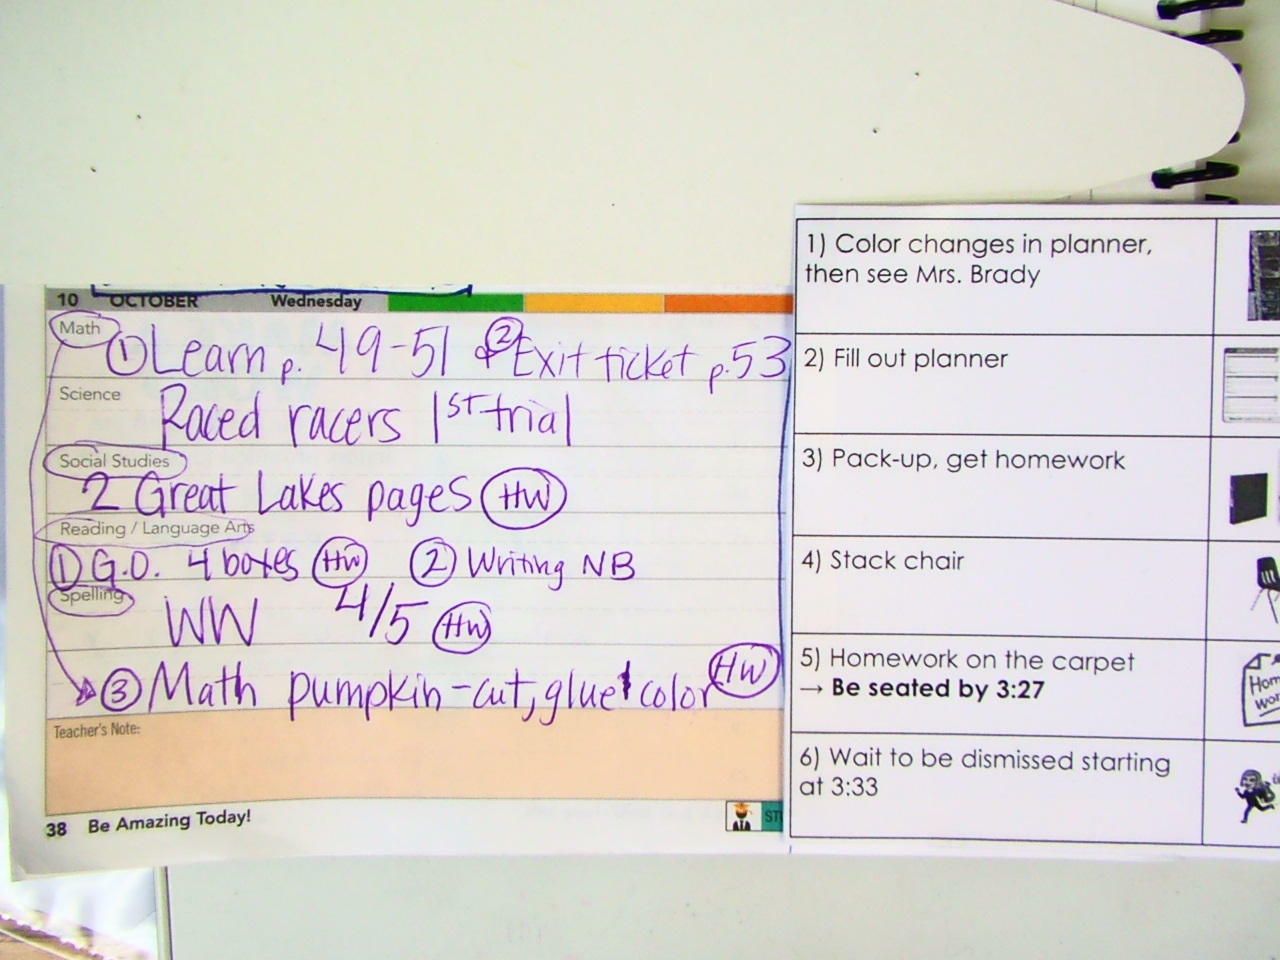 10 OCTOBER Wednesday
Math
① Learn p. 49-51 & ② Exit ticket p.53
Science
Raced racers 1st trial
Social Studies
2 Great Lakes pages HW
Reading / Language Arts
① G.O. 4 boxes HW ② Writing NB
Spelling
WW 4/5 HW
③ Math pumpkin-cut, glue + color HW
Teacher's Note:
38 Be Amazing Today!
1) Color changes in planner,
then see Mrs. Brady
2) Fill out planner
3) Pack-up, get homework
4) Stack chair
5) Homework on the carpet
→ Be seated by 3:27
6) Wait to be dismissed starting
at 3:33